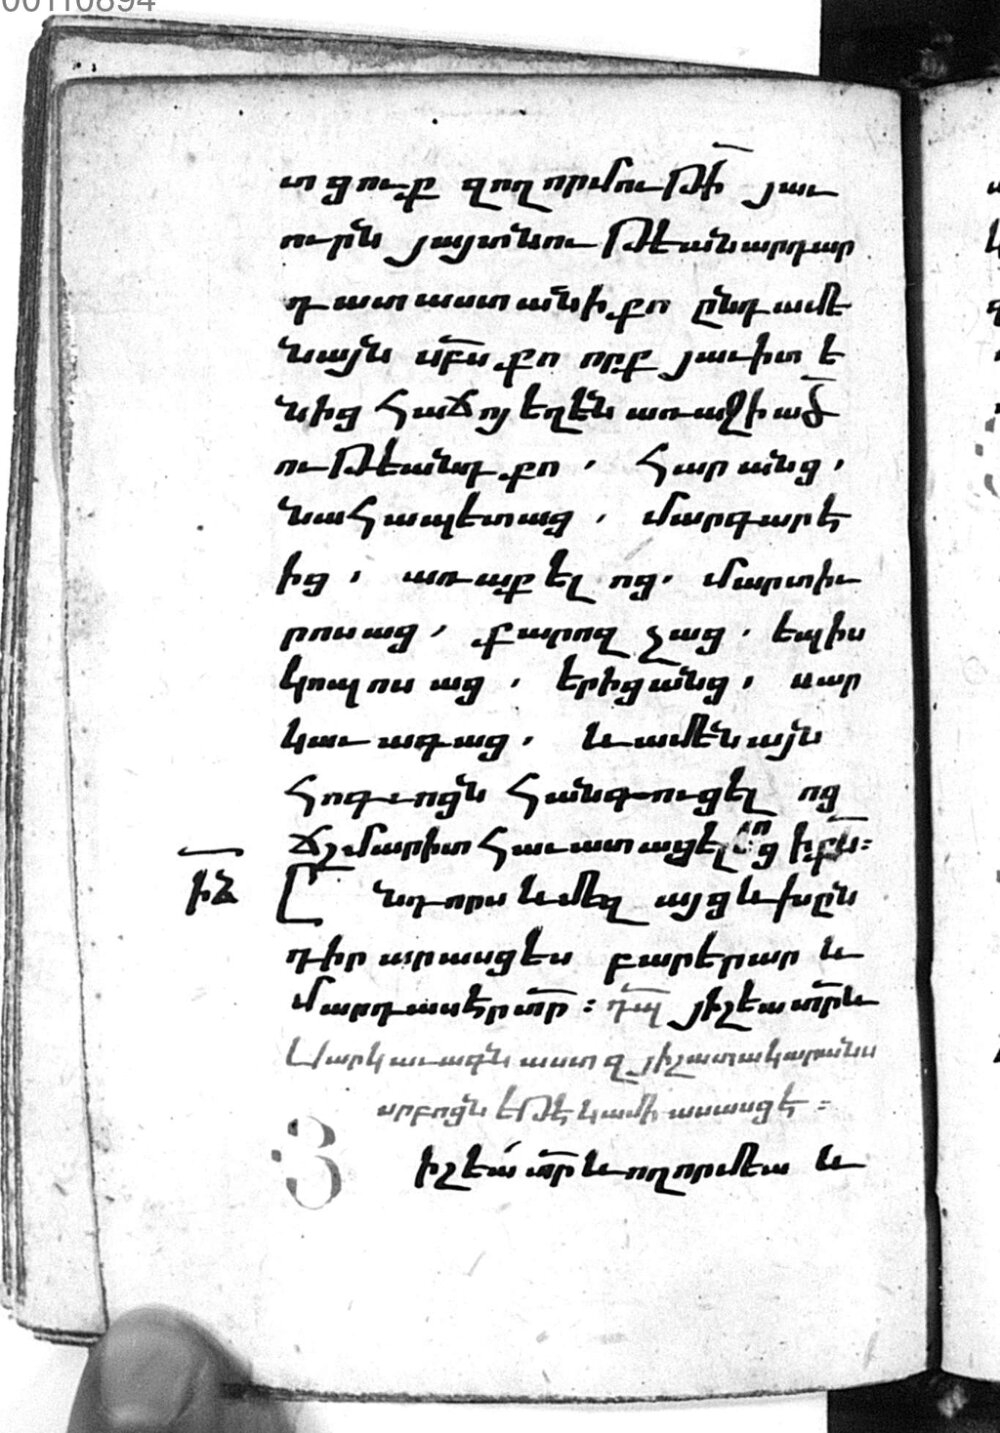 00110894
տցուք զողորմութի՟ յաւ
ուրն յայտնութեան արդար
դատաստանի քո ընդ ամե
նայն սբս քո որք յաւիտե
նից հաճոյ եղեն առաջի ած
ութեանդ քո, հարանց,
նահապետաց, մարգարե
ից, առաքելոց, մարտի
րոսաց, քարոզչաց, եպիս
կոպոսաց, երիցանց, սար
կաւագաց, և ամենայն
հոգւոցն հանգուցելոց
ճշմարիտ հաւատացելոց ի քս։
ԻՃ Ընդ որս և մեզ այց և խըն
դիր արասցես բարերար և
մարդասեր տր։ դպ յիշեա տր և
Սարկաւագն աստ զյիշատակարանս
սրբոցն եթե կամի ասասցե։
Յիշեա՛ տր և ողորմեա և